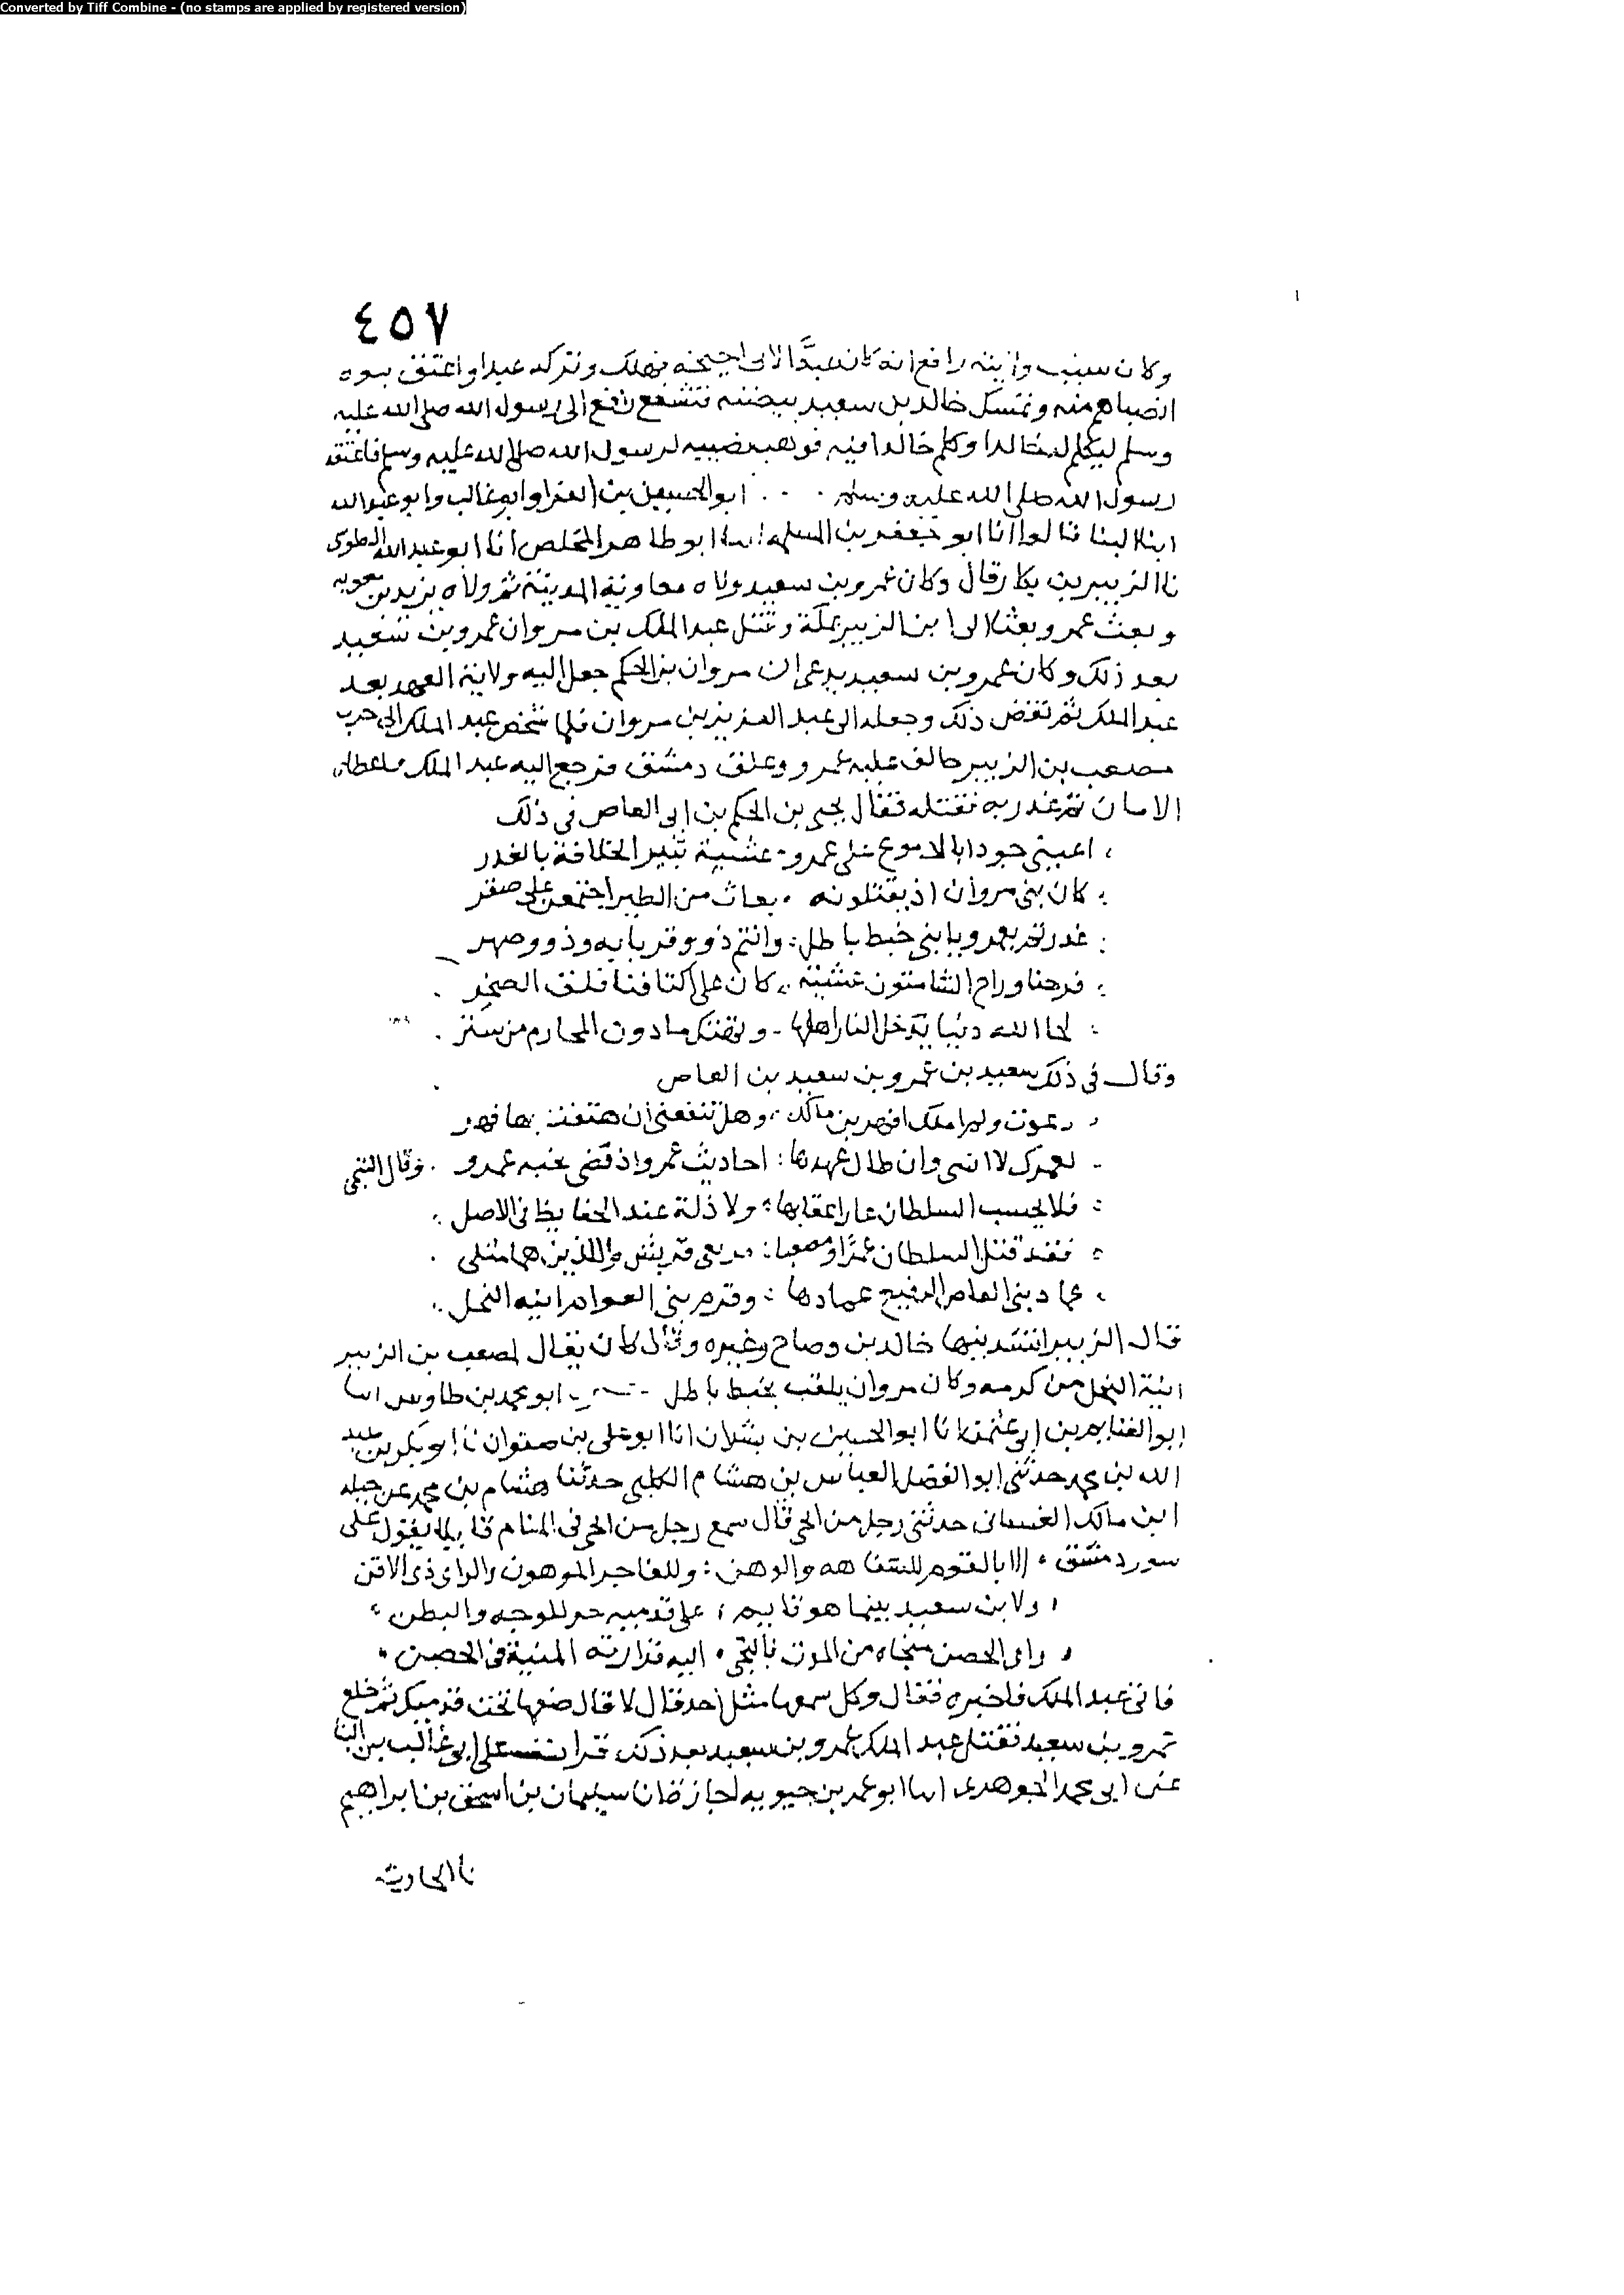 Converted by Tiff Combine - (no stamps are applied by registered version)
٤٥٧
وكان سبب وابنه رافع انه كان عبدا لابى احيحة فهلك وتركه عبدا واعتق بنوه
انصباهم منه وتمسك خالد بن سعيد بحصته فتشفع رافع الى رسول الله صلى الله عليه
وسلم ليكلم له خالدا وكلم خالدا فيه فوهب نصيبه لرسول الله صلى الله عليه وسلم فاعتقه
رسول الله صلى الله عليه وسلم . . . ابو الحسين بن الفرا وابو غالب وابو عبد الله
ابنا البنا قالوا انا ابو جعفر بن المسلمة انا ابو طاهر المخلص انا ابو عبد الله الطوسى
نا الزبير بن بكار قال وكان عمرو بن سعيد ولاه معاوية المدينة ثم ولاه يزيد بن معويه
وبعث عمرو بعثا الى ابن الزبير بمكة وقتل عبد الملك بن مروان عمرو بن سعيد
بعد ذلك وكان عمرو بن سعيد يدعى ان مروان بن الحكم جعل اليه ولاية العهد بعد
عبد الملك ثم نقض ذلك وجعله الى عبد العزيز بن مروان فلما شخص عبد الملك الى حرب
مصعب بن الزبير خالف عليه عمرو وغلق دمشق فرجع اليه عبد الملك فاعطاه
الامان ثم غدر به فقتله فقال يحيى بن الحكم بن ابى العاص فى ذلك
اعينى جودا بالدموع على عمرو - عشية تبتز الخلافة بالغدر
كان بنى مروان اذ يقتلونه . بغاث من الطير اجتمعن على صقر
غدرتم بعمرو يا بنى خيط باطل : وانتم ذوو قربا به وذوو صهر
فرحنا وراح الشامتون عشية . كان على اكتافنا فلق الصخر .
لحا الله دنيا يدخل النار اهلها - وتهتك ما دون المحارم من ستر .
وقال فى ذلك سعيد بن عمرو بن سعيد بن العاص
دعوت ولم املك افهر بن مالك . وهل تنفعنى ان هتفت بها فهر
لعمرك لا انسى وان طال عهدها : احاديث عمرو اذ قضى نحبه عمرو . وقال التيمى
فلا يحسب السلطان عارا عقابها : ولا ذلة عند الحفايظ فى الاصل :
فقد قتل السلطان عمرا ومصعبا : قريش واللذين هما مثلى .
عماد بنى العاص الرفيع عمادها : وقرم بنى العوام انية النحل :
قال الزبير انشدنيها خالد بن وضاح وغيره وقال كان يقال لمصعب بن الزبير
انية النحل من كرمه وكان مروان يلقب بخيط باطل - ابو محمد بن طاوس انا
ابو الغنايم بن ابى عثمن انا ابو الحسين بن بشران انا ابو على بن صفوان نا ابو بكر بن عبد
الله بن محمد حدثنى ابو الفضل العباس بن هشام الكلبى حدثنا هشام بن محمد عن جبله
ابن مالك الغسانى حدثنى رجل من الحى قال سمع رجل من الحى فى المنام قايلا يقول على
سور دمشق . الا يا لقوم للسفاهه والوهن : وللفاجر الموهون والراى ذى الافن
ولابن سعيد بينما هو قايم ؛ على قدميه خر للوجه والبطن ؛
راى الحصن منجاه من الموت فالتجى . اليه فزارته المنية فى الحصن .
فاتى عبد الملك فاخبره فقال وكل سمعها مثل احد قال لا قال ضعها تحت قدميك ثم خلع
عمرو بن سعيد فقتل عبد الملك عمرو بن سعيد بعد ذلك قرات على ابى غالب بن البنا
عن ابى محمد الجوهرى انا ابو عمر بن حيويه اجازة نا سليمان بن اسحق بن ابراهيم
نا الحارث